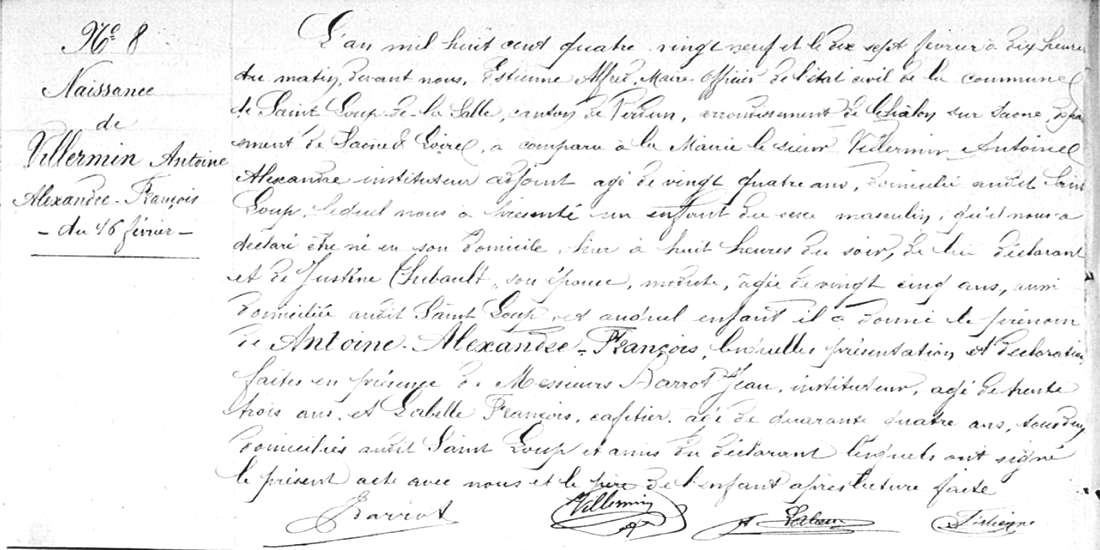 No 8
Naissance
de
Villermin Antoine
Alexandre-François
- du 16 février -
L'an mil huit cent quatre vingt neuf et le dix sept février à dix heures
du matin, devant nous, Estienne Alfred, Maire officier de l'état civil de la commune
de Saint Loup de la Salle, canton de Verdun, arrondissement de Chalon sur Saone, dépar
tement de Saone & Loire, a comparu à la Mairie le sieur Villermin Antoine
Alexandre instituteur adjoint agé de vingt quatre ans, domicilié audit Saint
Loup, lequel nous a présenté un enfant du sexe masculin, qu'il nous a
déclaré être né en son domicile, hier à huit heures du soir, de lui déclarant
et de Justine Chubault, son épouse, modiste, agée de vingt cinq ans, aussi
domiciliée audit Saint Loup et auquel enfant il a donné le prénom
de Antoine-Alexandre-François, lesquelles présentation et déclaration
faites en présence de Messieurs Barrot Jean, instituteur, agé de trente
trois ans, et Labelle François, cafetier, agé de quarante quatre ans, tous deux
domiciliés audit Saint Loup et amis du déclarant lesquels ont signé
le présent acte avec nous et le père de l'enfant après lecture faite
Barrot Villermin Estienne